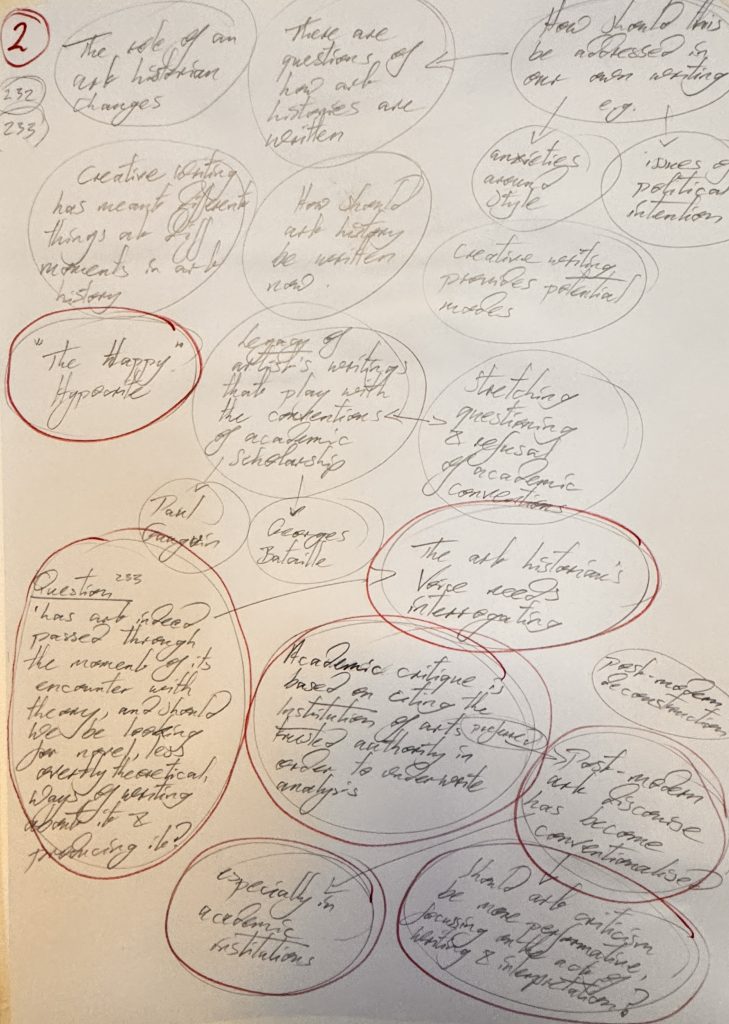 2
232
233
The role of an
art historian
changes
There are
questions of
how art
histories are
written
How should this
be addressed in
our own writing
e.g.
anxieties
around
style
issues of
political
intention
Creative writing
has meant different
things at diff
moments in art
history
How should
art history
be written
now.
Creative writing
provides potential
modes
"The Happy"
Hypocrite
Legacy of
artist's writings
that play with
the conventions
of academic
scholarship
stretching
questioning
& refusal
of academic
conventions
Paul
Gauguin
Georges
Bataille
Question 233
'has art indeed
passed through
the moment of its
encounter with
theory, and should
we be looking
for novel, less
overtly theoretical,
ways of writing
about it &
producing it?
The art historian's
Voise needs
interrogating
Academic critique is
based on citing the
Institution of arts preferred
trusted authority in
order to underwrite
analysis
post-modern
deconstruction
Post-modern
art discourse
has become
conventionalised
especially in
academic
institutions
should art criticism
be more performative,
focusing on the act of
writing & interpretation?